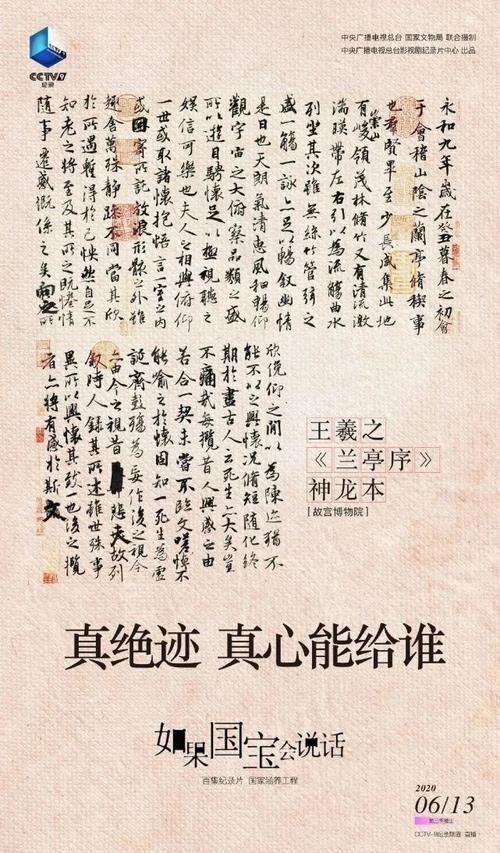 CCTV9
纪录
中央广播电视总台 国家文物局 联合摄制
中央广播电视总台影视剧纪录片中心 出品
永和九年歲在癸丑暮春之初會
于會稽山陰之蘭亭脩稧事
也羣賢畢至少長咸集此地
有崇山峻領茂林脩竹又有清流激
湍暎帶左右引以為流觴曲水
列坐其次雖無絲竹管弦之
盛一觴一詠亦足以暢敘幽情
是日也天朗氣清惠風和暢仰
觀宇宙之大俯察品類之盛
所以遊目騁懷足以極視聽之
娛信可樂也夫人之相與俯仰
一世或取諸懷抱悟言一室之內
或因寄所託放浪形骸之外雖
趣舍萬殊靜躁不同當其欣
於所遇蹔得於己怏然自足不
知老之將至及其所之既惓情
隨事遷感慨係之矣向之所
欣俛仰之閒以為陳迹猶不
能不以之興懷況脩短隨化終
期於盡古人云死生亦大矣豈
不痛哉每攬昔人興感之由
若合一契未嘗不臨文嗟悼不
能喻之於懷固知一死生為虛
誕齊彭殤為妄作後之視今
亦由今之視昔悲夫故列
敘時人錄其所述雖世殊事
異所以興懷其致一也後之攬
者亦將有感於斯文
王羲之
《兰亭序》
神龙本
[故宫博物院]
真绝迹 真心能给谁
如果国宝会说话
百集纪录片 国家涵养工程
2020
06/13
第三季播出
CCTV-9纪录频道 首播